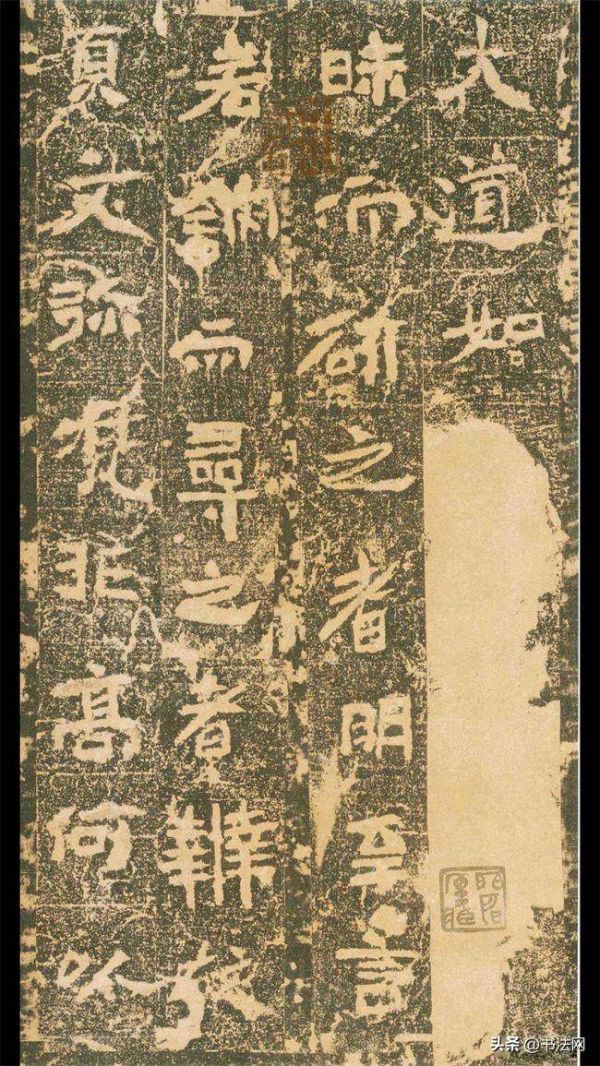 大道如
昧而研之者明至言
若訥而尋之者辯故
文弥非高何以
头条@书法网